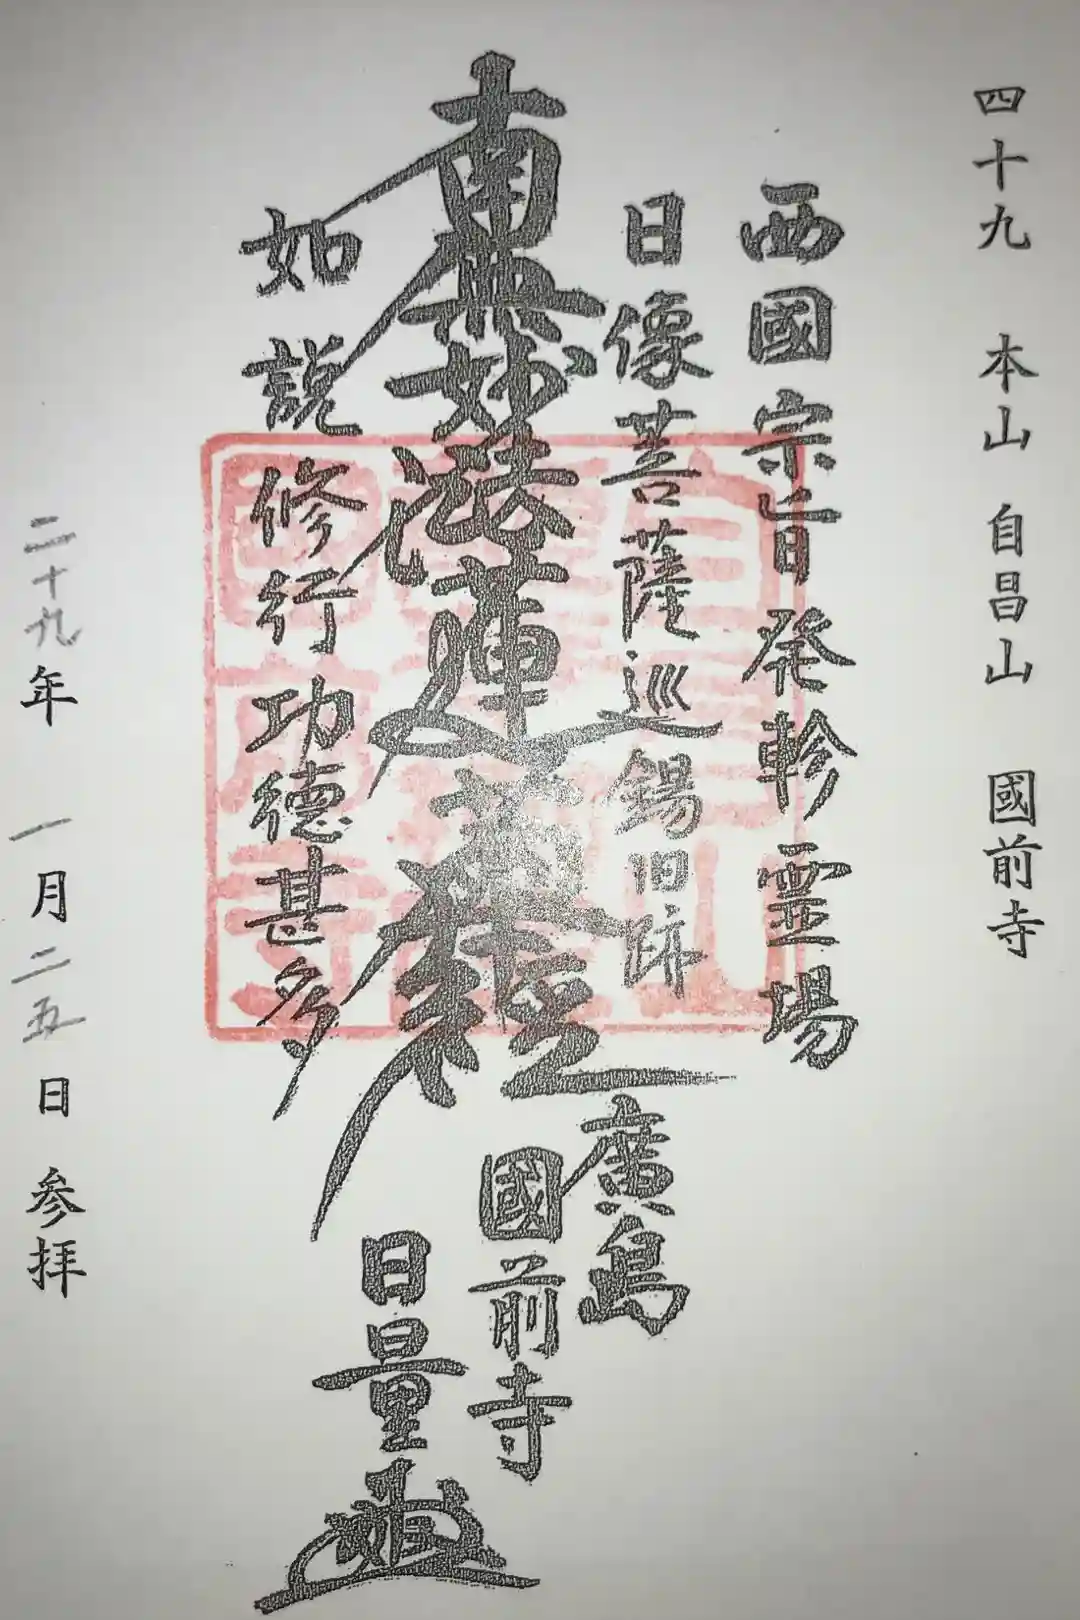 四十九 本山 自昌山 國前寺
西國宗旨発軫霊場
日像菩薩巡錫旧跡
廣島
南無妙法蓮華經
國前寺
日量
如説修行功徳甚多
二十九年 一月二五日 参拝